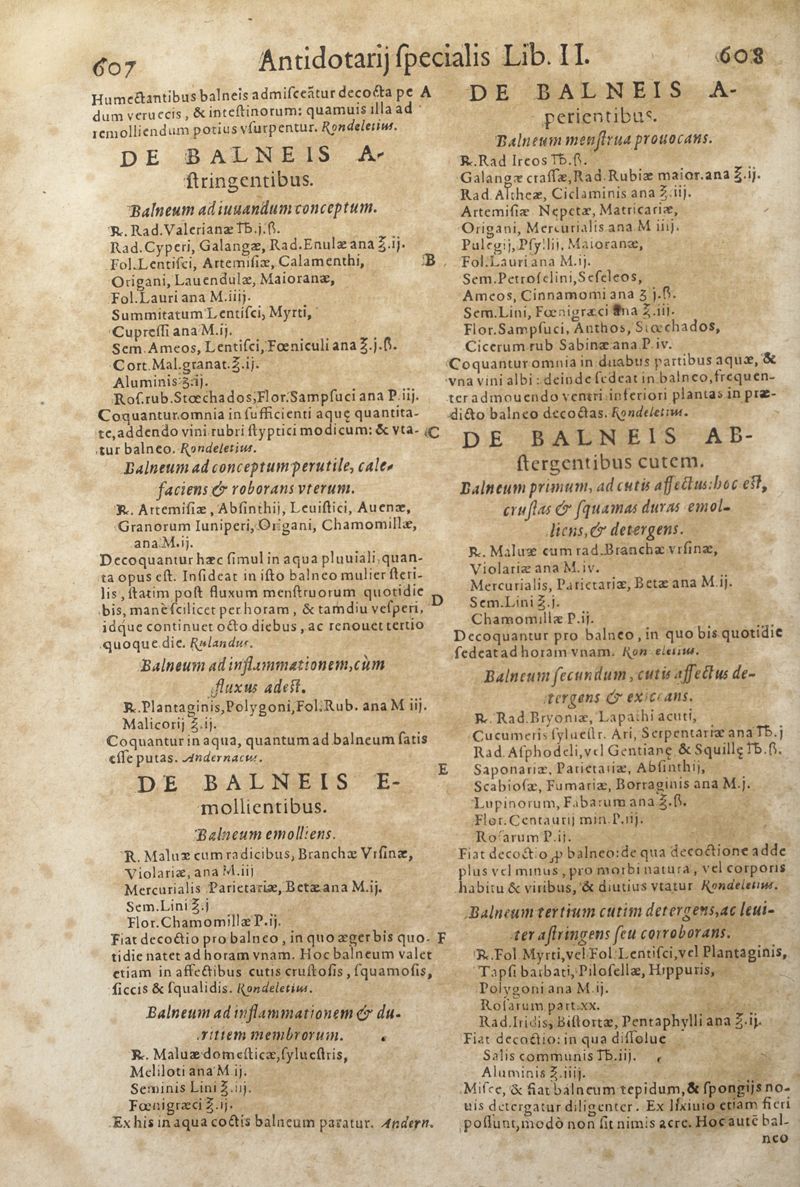 607 Antidotarij ſpecialis Lib. II. 608
Humectantibus balneis admiſceātur decocta pe A
dum veruecis, & inteſtinorum: quamuis illa ad
remolliendum potius vſurpentur. Rondeletius.
DE BALNEIS A-
ſtringentibus.
Balneum ad iuuandum conceptum.
℞. Rad. Valerianæ ℔.j.ß.
Rad. Cyperi, Galangæ, Rad. Enulæ ana ℥.ij.
Fol. Lentiſci, Artemiſiæ, Calamenthi, B
Origani, Lauendulæ, Maioranæ,
Fol. Lauri ana M.iiij.
Summitatum Lentiſci, Myrti,
Cupreſſi ana M.ij.
Sem Ameos, Lentiſci, Fœniculi ana ℥.j.ß.
Cort. Mal. granat. ℥.ij.
Aluminis ℥.ij.
Roſ. rub. Stœchados, Flor. Sampſuci ana P.iij.
Coquantur omnia in ſufficienti aquę quantita-
te, addendo vini rubri ſtyptici modicum: & vta- C
tur balneo. Rondeletius.
Balneum ad conceptum perutile, cale-
faciens & roborans vterum.
℞. Artemiſiæ, Abſinthij, Leuiſtici, Auenæ,
Granorum Iuniperi, Origani, Chamomillæ,
ana M.ij.
Decoquantur hæc ſimul in aqua pluuiali quan-
ta opus eſt. Inſideat in iſto balneo mulier ſteri-
lis, ſtatim poſt fluxum menſtruorum quotidie D
bis, manè ſcilicet per horam, & tamdiu veſperi,
idque continuet octo diebus, ac renouet tertio
quoque die. Rulandus.
Balneum ad inflammationem, cùm
fluxus adeſt.
℞. Plantaginis, Polygoni, Fol. Rub. ana M iij.
Malicorij ℥.ij.
Coquantur in aqua, quantum ad balneum ſatis
eſſe putas. Andernacus.
DE BALNEIS E- E
mollientibus.
Balneum emolliens.
℞. Maluæ cum radicibus, Branchæ Vrſinæ,
Violariæ, ana M.iij
Mercurialis Parietariæ, Betæ ana M.ij.
Sem. Lini ℥.j
Flor. Chamomillæ P.ij.
Fiat decoctio pro balneo, in quo æger bis quo- F
tidie natet ad horam vnam. Hoc balneum valet
etiam in affectibus cutis cruſtoſis, ſquamoſis,
ſiccis & ſqualidis. Rondeletius.
Balneum ad inflammationem & du-
ritiem membrorum.
℞. Maluæ domeſticæ, ſylueſtris,
Meliloti ana M ij.
Seminis Lini ℥.iij.
Fœnigræci ℥.ij.
Ex his in aqua coctis balneum paratur. Andern.
DE BALNEIS A-
perientibus.
Balneum menſtrua prouocans.
℞. Rad Ireos ℔.ß.
Galangæ craſſæ, Rad. Rubiæ maior. ana ℥.ij.
Rad. Altheæ, Ciclaminis ana ℥.iij.
Artemiſiæ Nepetæ, Matricariæ,
Origani, Mercurialis ana M iiij.
Pulegij, Pſyllij, Maioranæ,
Fol. Lauri ana M.ij.
Sem. Petroſelini, Seſeleos,
Ameos, Cinnamomi ana ʒ j.ß.
Sem. Lini, Fœnigræci ana ℥.iij.
Flor. Sampſuci, Anthos, Stœchados,
Cicerum rub Sabinæ ana P.iv.
Coquantur omnia in duabus partibus aquæ, &
vna vini albi: deinde ſedeat in balneo, frequen-
ter admouendo ventri inferiori plantas in præ-
dicto balneo decoctas. Rondeletius.
DE BALNEIS AB-
ſtergentibus cutem.
Balneum primum, ad cutis affectus: hoc eſt,
cruſtas & ſquamas duras emol-
liens, & detergens.
℞. Maluæ cum rad. Branchæ vrſinæ,
Violariæ ana M.iv.
Mercurialis, Parietariæ, Betæ ana M.ij.
Sem. Lini ℥.j.
Chamomillæ P.ij.
Decoquantur pro balneo, in quo bis quotidie
ſedeat ad horam vnam. Rondeletius.
Balneum ſecundum, cutis affectus de-
tergens & exsiccans.
℞. Rad. Bryoniæ, Lapathi acuti,
Cucumeris ſylueſtr. Ari, Serpentariæ ana ℔.j
Rad. Aſphodeli, vel Gentianę & Squillę ℔.ß.
Saponariæ, Parietariæ, Abſinthij,
Scabioſæ, Fumariæ, Borraginis ana M.j.
Lupinorum, Fabarum ana ℥.ß.
Flor. Centaurij min. P.iij.
Roſarum P.ij.
Fiat decoctio, ꝓ balneo: de qua decoctione adde
plus vel minus, pro morbi natura, vel corporis
habitu & viribus, & diutius vtatur Rondeletius.
Balneum tertium cutim detergens, ac leui-
ter aſtringens ſeu corroborans.
℞. Fol Myrti, vel Fol. Lentiſci, vel Plantaginis,
Tapſi barbati, Piloſellæ, Hippuris,
Polygoni ana M.ij.
Roſarum part. xx.
Rad. Iridis, Biſtortæ, Pentaphylli ana ℥.ij.
Fiat decoctio: in qua diſſolue
Salis communis ℔.iij.
Aluminis ℥.iiij.
Miſce, & fiat balneum tepidum, & ſpongijs no-
uis detergatur diligenter. Ex lixiuio etiam fieri
poſſunt, modò non ſit nimis acre. Hoc autē bal-
neo